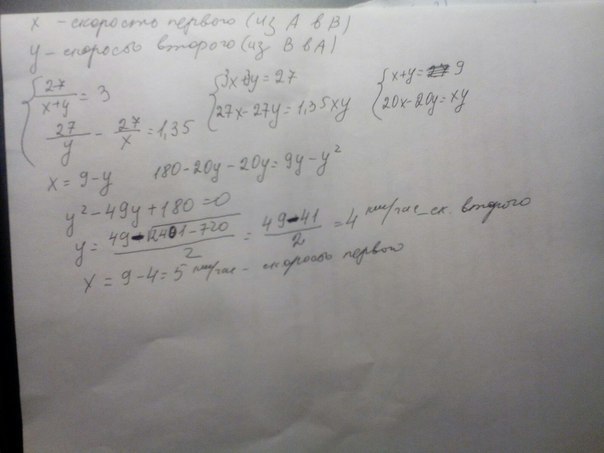 x - скорость первого (из A в B)
y - скорость второго (из B в A)
{ 27/(x+y) = 3 { 3x+3y = 27 { x+y = 9
27/y - 27/x = 1,35 27x-27y = 1,35xy 20x-20y = xy
x = 9-y 180-20y-20y = 9y-y²
y² - 49y + 180 = 0
y = (49-√2401-720)/2 = (49-41)/2 = 4 км/час - ск. второго
x = 9-4 = 5 км/час - скорость первого